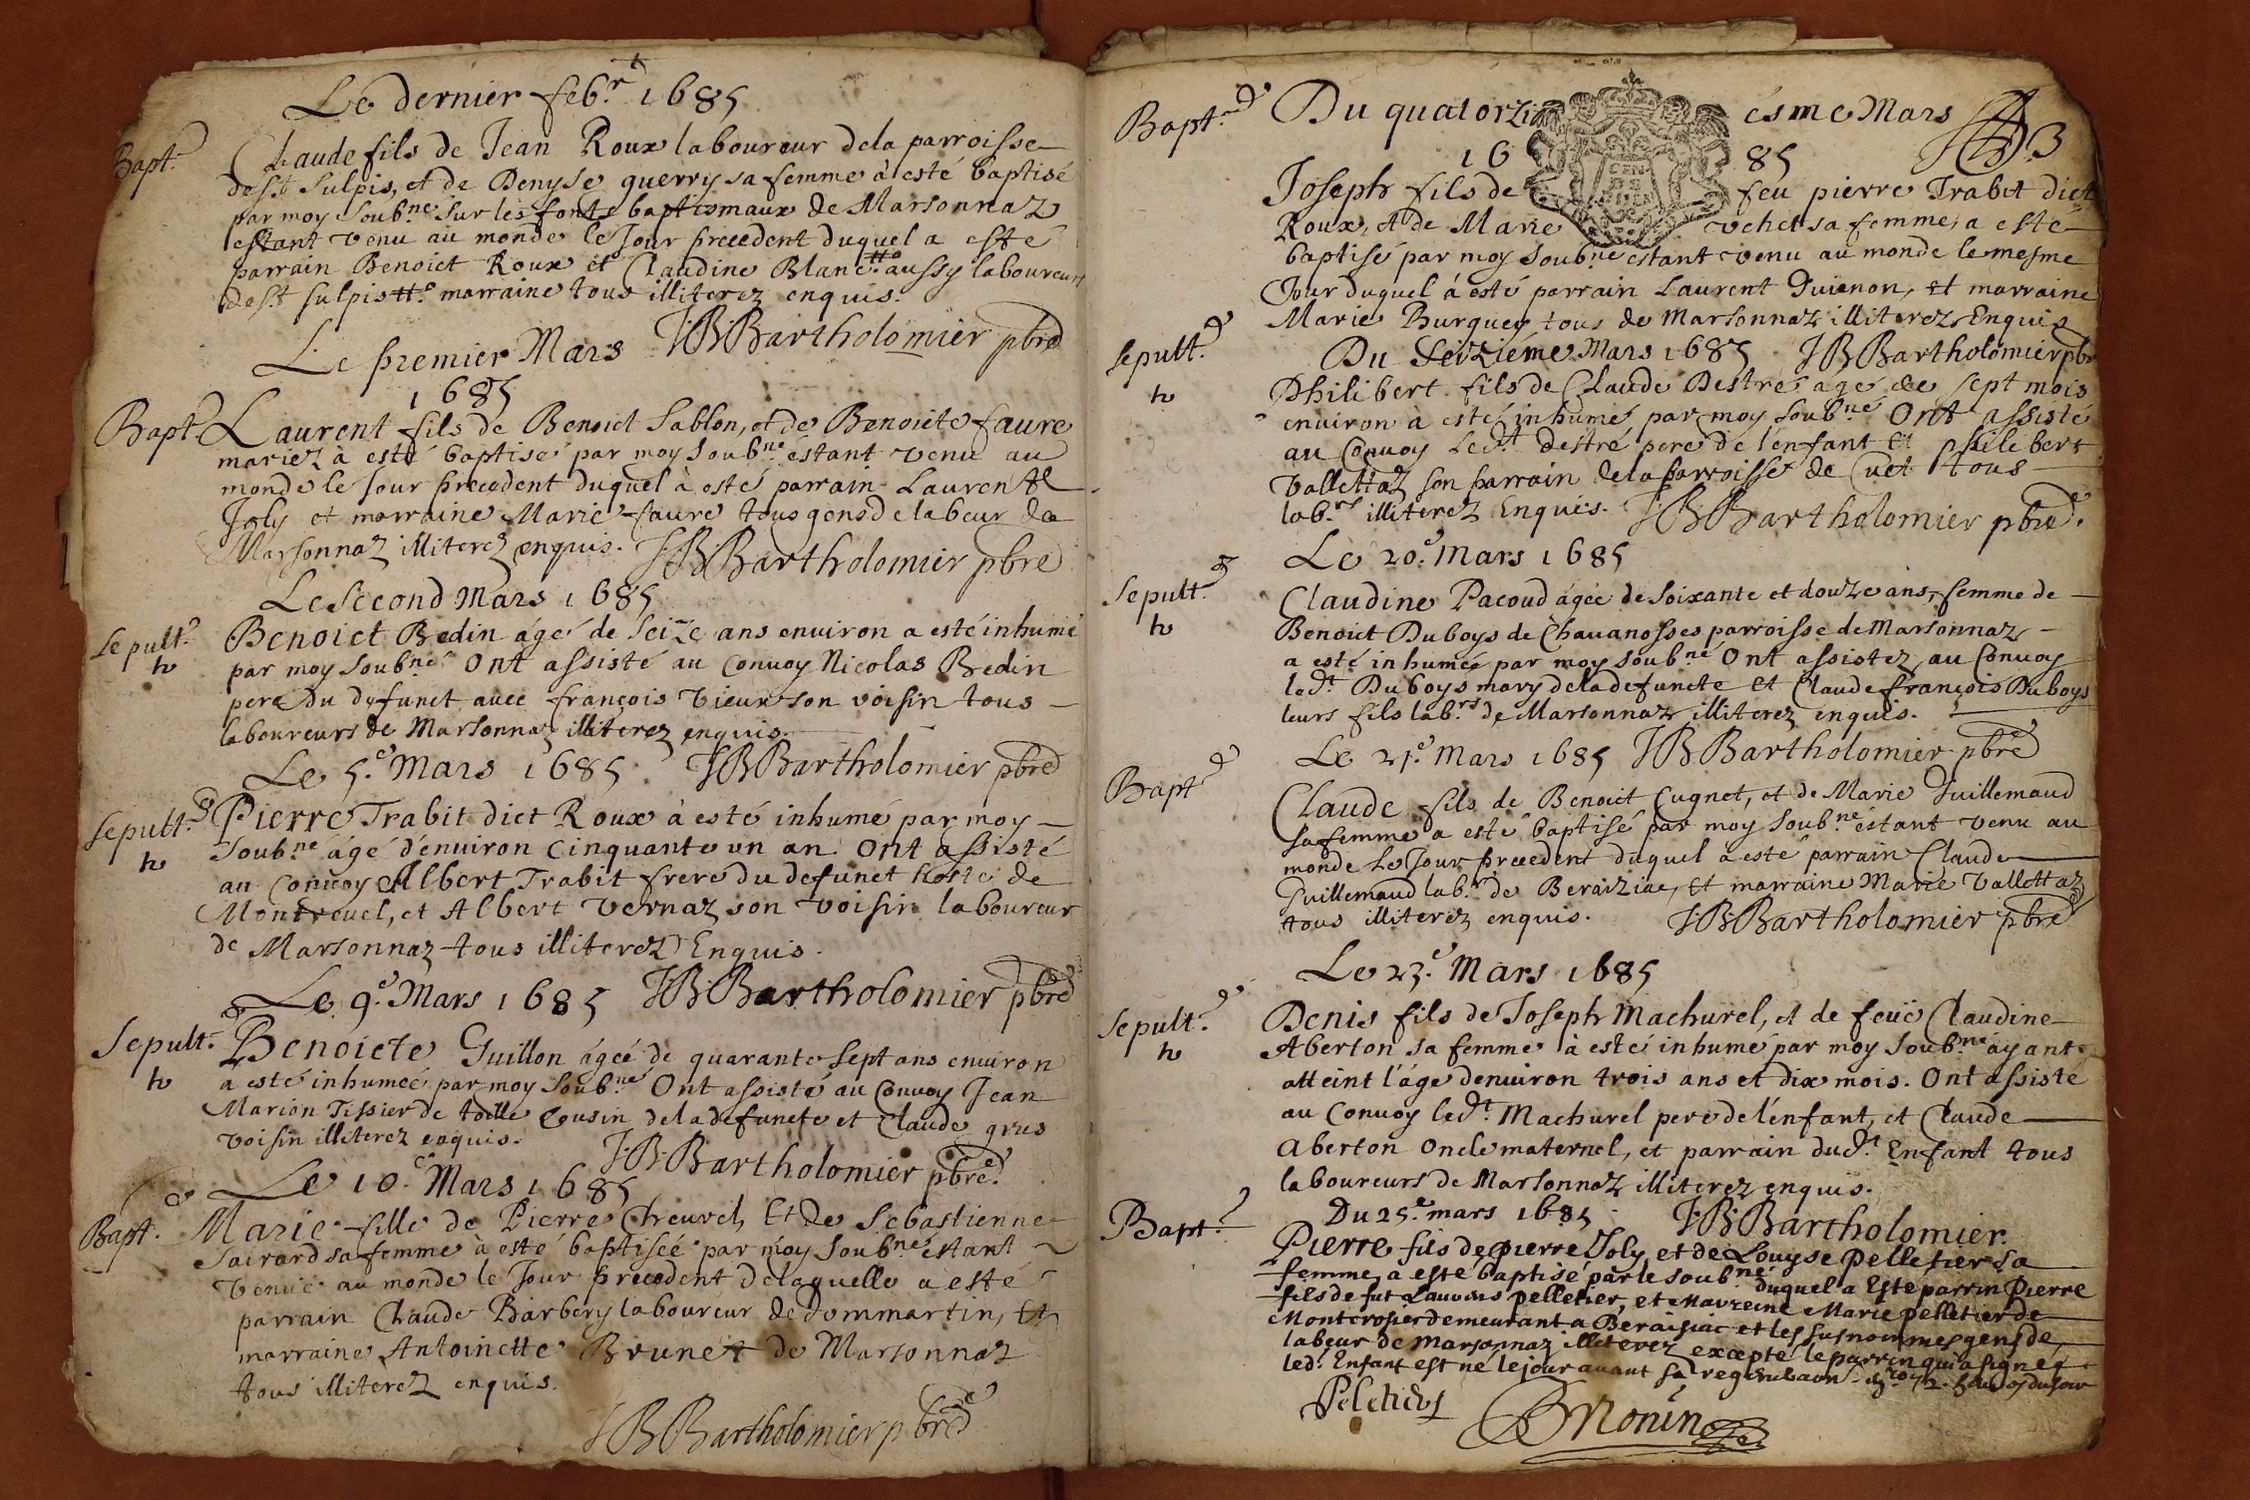 Le dernier feb.r 1685
Bapt.e Claude fils de Jean Roux laboureur dela parroisse
de s.t Sulpis, et de Denyse guerry sa femme à esté baptisé
par moy soub.né sur les fonts baptismaux de Marsonnaz
estant venu au monde le Jour precedent duquel a esté
parrain Benoict Roux et Claudine Blanc aussy laboureurs
de s.t sulpis marraine tous illiterez enquis.
JB Bartholomier pbre
Le premier Mars
1685
Bapt.e Laurent fils de Benoict Sablon, et de Benoicte faure
mariez à esté baptisé par moy soub.né éstant venu au
monde le Jour precedent duquel à esté parrain Laurent
Joly et marraine Marie faure tous gens de labeur de
Marsonnaz illiterez enquis. JB Bartholomier pbre
Le Second Mars 1685
Sepult.e h Benoict Bedin ágé de seize ans enuiron a esté inhumé
par moy soub.né Ont assisté au Conuoy Nicolas Bedin
pere Du defunct auec françois Vieux son voisin tous
laboureurs de Marsonnaz illiterez enquis.
Le 5.e Mars 1685. JB Bartholomier pbre
Sepult.e h Pierre Trabit dict Roux à esté inhumé par moy
Soub.né ágé d'énuiron Cinquante un an. Ont assisté
au Conuoy Albert Trabit frere du defunct hoste de
Montreuel, et Albert Vernaz son voisin laboureur
de Marsonnaz tous illiterez Enquis.
Le 9.e Mars 1685 JB Bartholomier pbre
Sepult.e h Benoicte Guillon ágée de quarante sept ans enuiron
a esté inhumée par moy Soub.né Ont assisté au Conuoy Jean
Marion Tissier de toille Cousin dela defuncte et Claude grus
voisin illiterez enquis.
J.B. Bartholomier pbre.
Le 10.e Mars 1685
Bapt.e Marie fille de Pierre Cheurel, Et de Sebastienne
sa femme à esté baptiseé par moy soub.né estant
venüe au monde le Jour precedent delaquelle a esté
parrain Claude Barbery laboureur de Dommartin, Et
marraine Antoinette Brunet de Marsonnaz
tous illiterez enquis.
JB Bartholomier pbre
Bapt.e Du quatorziésme Mars
3
1685
Joseph fils de feu pierre Trabit dict
Roux, et de Marie vchet sa femme, a esté
baptisé par moy Soub.né estant venu au monde le mesme
Jour duquel à esté parrain Laurent Guienon, et marraine
Marie Burquey tous de Marsonnaz illiterez Enquis
Sepult.e h Du Seiziéme Mars 1685 JB Bartholomier pbr
Philibert fils de Claude Destré agé de sept mois
enuiron à esté inhumé par moy soub.né Ont assisté
au Conuoy Led.t destré pere de lénfant Et philibert
Vallettaz son parrain dela parroisse de Cuet tous
lab.rs illiterez Enquis. JB Bartholomier pbre.
Le 20.e Mars 1685
Sepult.e h Claudine Pacoud ágée de soixante et douze ans, femme de
Benoict Duboys de Chauanosses parroisse de Marsonnaz
a esté inhumée par moy soub.né Ont assistez au Conuoy
led.t Duboys mary dela defuncte Et Claude françois Duboys
leurs fils lab.rs de Marsonnaz illiterez enquis.
Le 21.e Mars 1685 JB Bartholomier pbre
Bapt.e Claude fils de Benoict Cugnet, et de Marie Guillemaud
sa femme a esté baptisé par moy soub.né éstant venu au
monde Le Jour precedent duquel a esté parrain Claude
Guillemaud lab.r de Beraiziac, Et marraine Marie Vallettaz
tous illiterez enquis. J.B. Bartholomier pbre
Le 23.e Mars 1685
Sepult.e h Denis fils de Joseph Machurel, et de feuë Claudine
Aberton sa femme à esté inhumé par moy Soub.né ayant
atteint l'áge denuiron trois ans et dix mois. Ont assisté
au Conuoy led.t Machurel pere de lénfant, et Claude
Aberton Oncle maternel, et parrain dud.t Enfant tous
laboureurs de Marsonnaz illiterez enquis.
Du 25.e mars 1685. J.B. Bartholomier.
Bapt.e Pierre fils de pierre Joly et de Louyse Pelletier sa
femme a esté baptisé par le soub.né duquel a Esté parrin Pierre
fils de fut pelletier, et Marreine Marie pelletier de
Montcrosier demeurant a Beraisiac et les susnommes gens de
labeur de Marsonnaz illiterez excepté le parrin qui a signé
led.t Enfant est né le jour auant sa
Peletier
B Monin